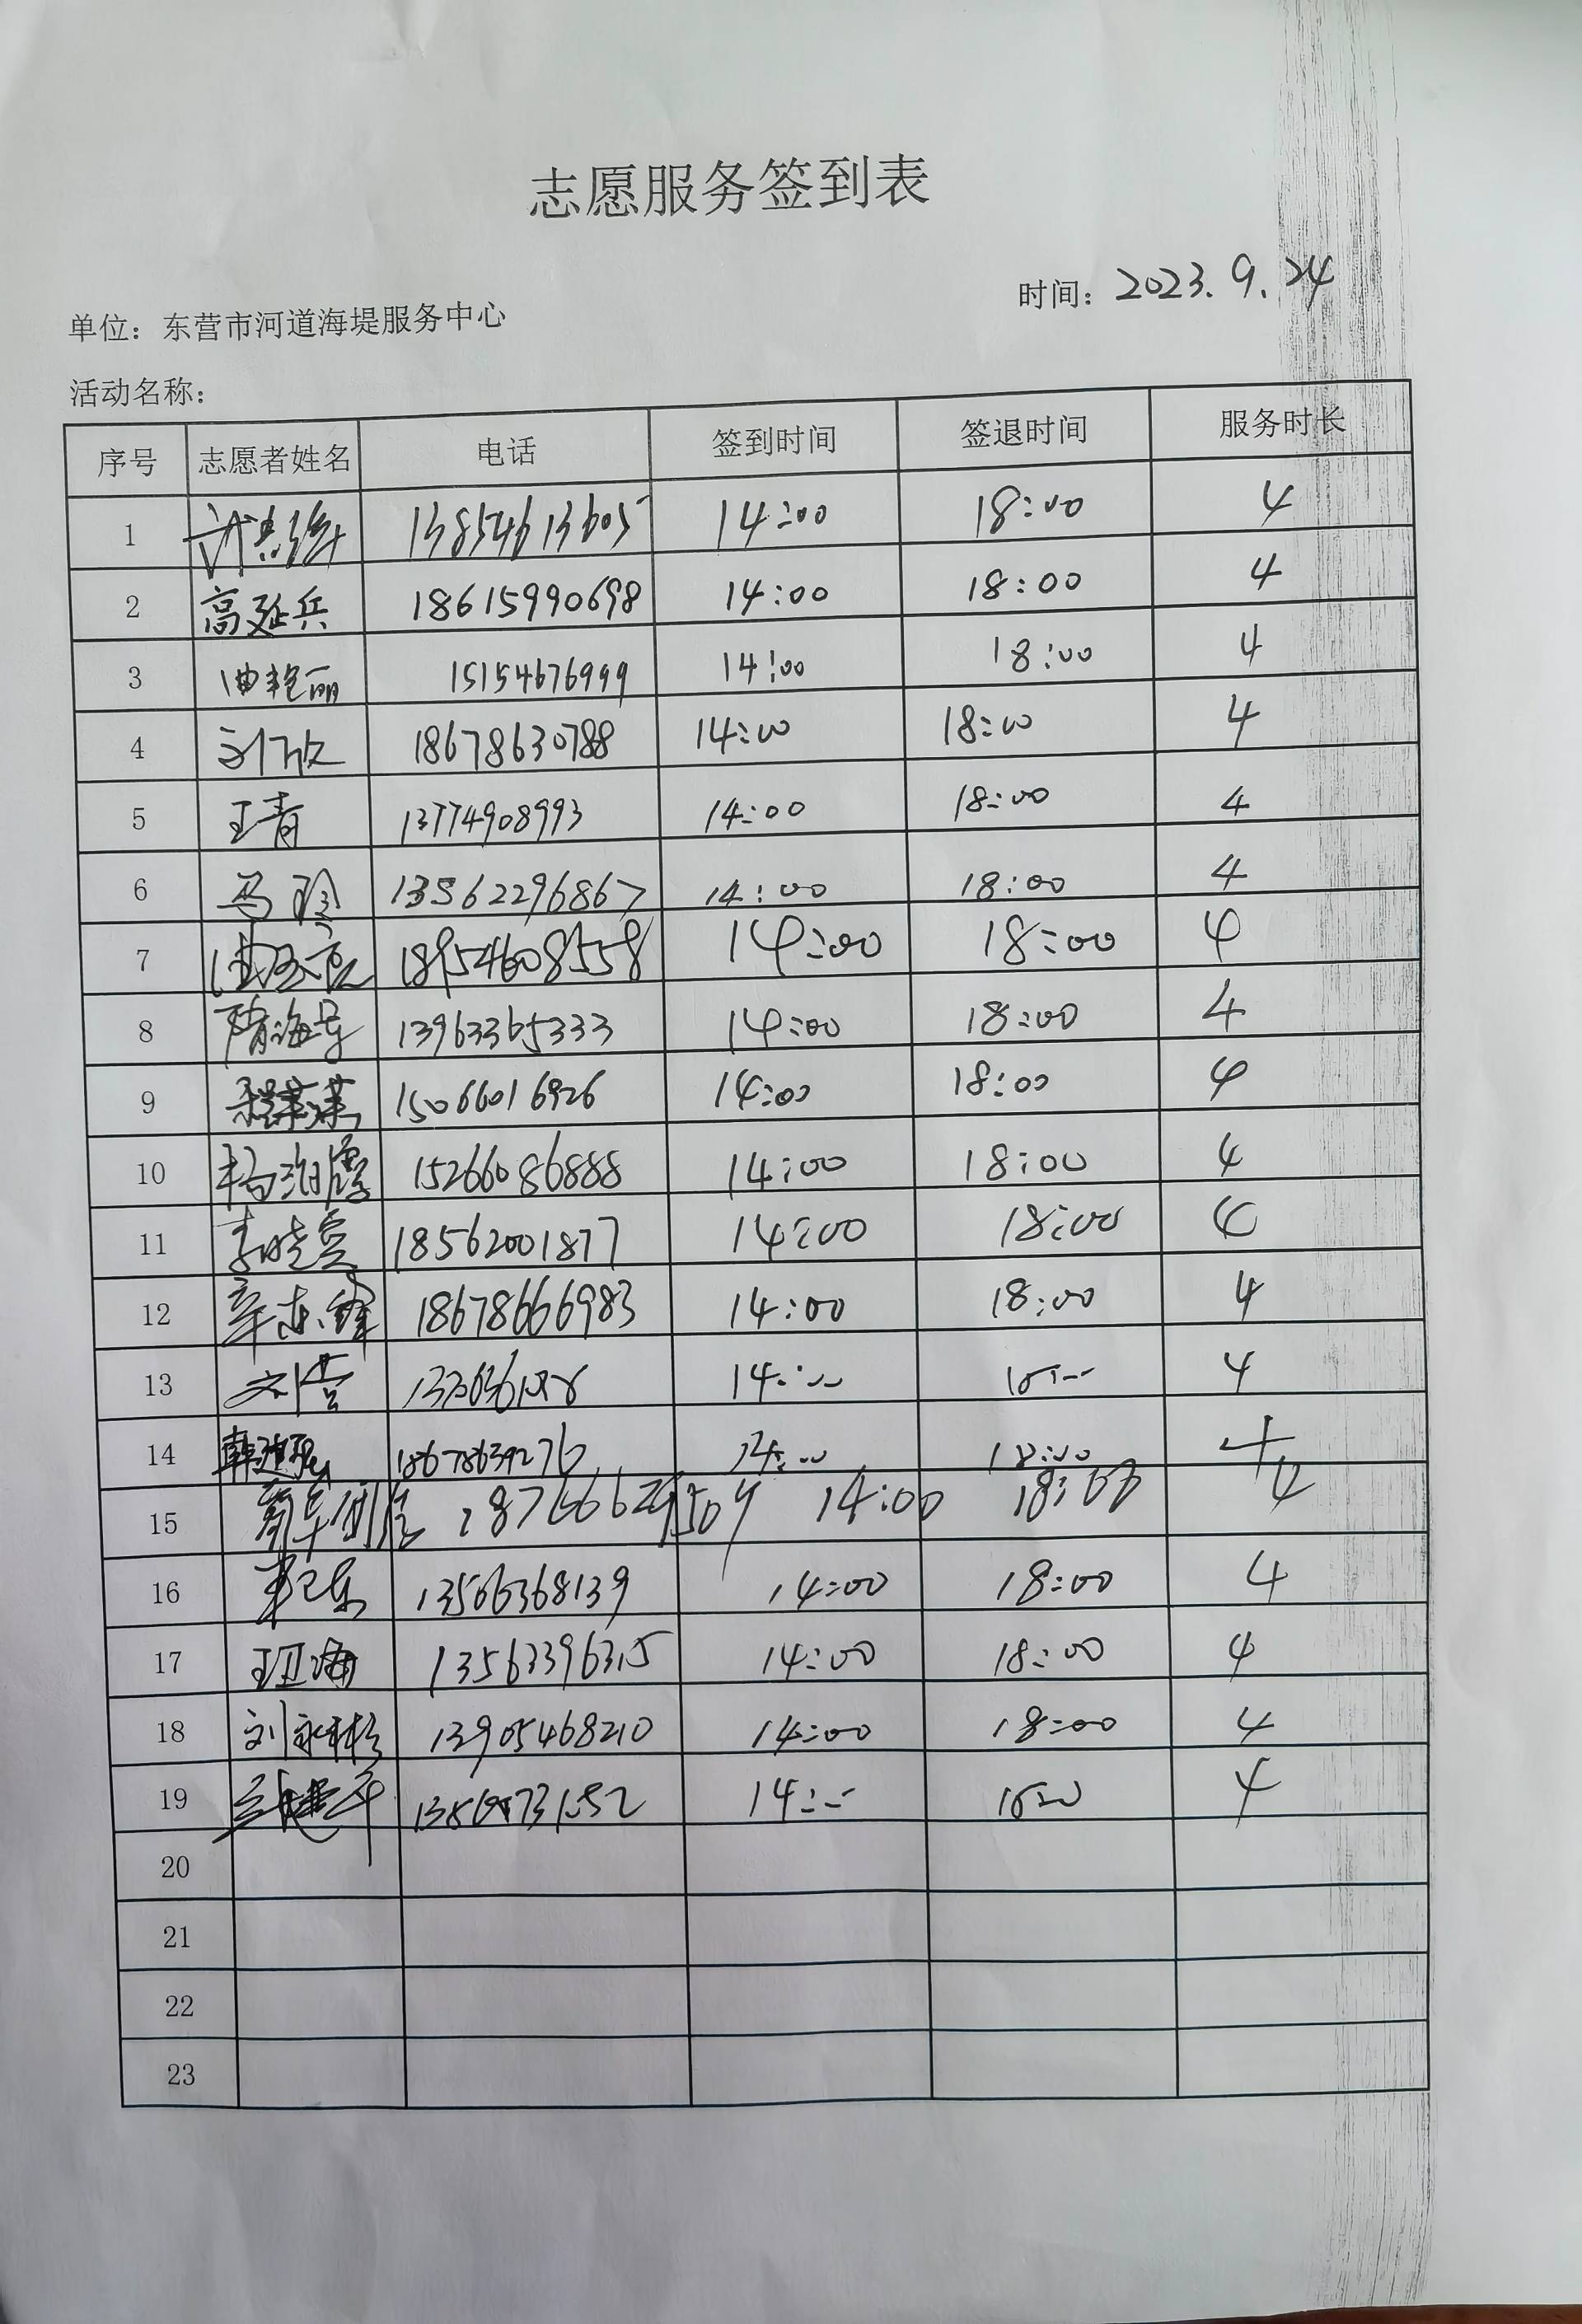 志愿服务签到表
时间：2023.9.24
单位：东营市河道海堤服务中心
活动名称：
序号 志愿者姓名 电话 签到时间 签退时间 服务时长
1 13854613605 14:00 18:00 4
2 高延兵 18615990698 14:00 18:00 4
3 曲艳丽 15154676999 14:00 18:00 4
4 刘欣 18678630788 14:00 18:00 4
5 王青 13774908993 14:00 18:00 4
6 马玲 13562296867 14:00 18:00 4
7 18954608558 14:00 18:00 4
8 隋海 13963365333 14:00 18:00 4
9 15066016926 14:00 18:00 4
10 杨 15266086888 14:00 18:00 4
11 李晓 18562001877 14:00 18:00 4
12 辛 18678666983 14:00 18:00 4
13 刘 14:00 4
14 韩 18678639276 14:00 18:00 4
15 18766629509 14:00 18:00 4
16 13506368139 14:00 18:00 4
17 王卫海 13563396315 14:00 18:00 4
18 刘永彬 13905468210 14:00 18:00 4
19 14:00 4
20
21
22
23